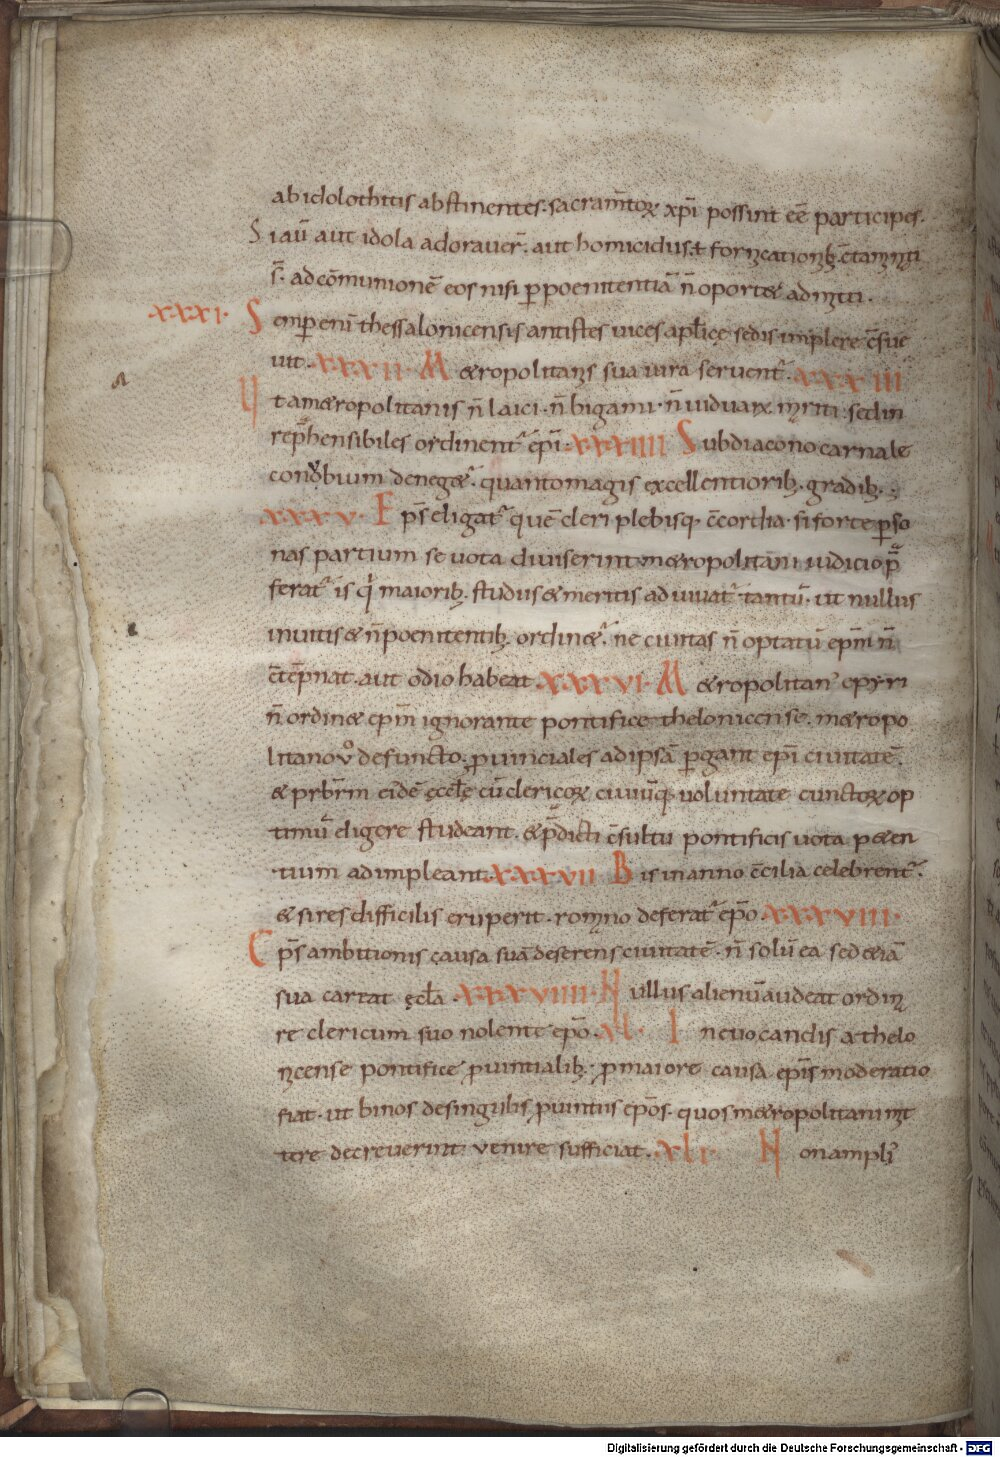 ab idolothitis abstinentes· sacram̅toꝝ xp̅i possint ee̅ participes·
Si au̅ aut idola adorauer̅· aut homicidiis· ł fornicationib; c̅taminati
s̅· ad co̅munione̅ eos nisi ꝑ poenitentia̅ n̅ oportet admitti·
xxxi· Semꝑ eni̅ thessalonicensis antistes uices apl̅icę sedis implere c̅sue
uit· xxxii· Metropolitanis sua iura seruent᷑· xxxiii
Ut a metropolitanis n̅ laici· n̅ bigami· n̅ uiduarꝝ mariti· sed in
rep̅hensibiles ordinent᷑ ep̅i· xxxiiii Subdiacono carnale
conubium deneget᷑· quanto magis excellentiorib; gradib;·
xxxv· Ep̅s eligat᷑ que̅ cleri plebisq· c̅cordia· si forte ꝑso
nas partium se uota diuiserint· metropolitani iuditio p̅
ferat᷑ is qͥ maiorib; studiis & meritis adiuuat᷑· tantu̅· ut nullus
inuitis & n̅ poenitentib; ordinet᷑· ne ciuitas n̅ optatu̅ ep̅m n̅
c̅te̅pnat· aut odio habeat· xxxvi· Metropolitan᾽ epyri
n̅ ordinet ep̅m ignorante pontifice thelonicense· metropo
litano v̊ defuncto· ꝓuinciales ad ipsa̅ ꝑgant ep̅i ciuitate̅·
& prb̅rm eide̅ ęcclę̅ cu̅ clericoꝝ ciuiu̅q· uoluntate cunctoꝝ op
timu̅ eligere studeant· & p̅dicti c̅sultu pontificis uota peten
tium adimpleant· xxxvii Bis in anno c̅cilia celebrent᷑·
& si res difficilis eruperit· romano deferat᷑ ep̅o· xxxviii·
Ep̅s ambitionis causa sua̅ deserens ciuitate̅· n̅ solu̅ ea sed etia̅
sua careat ęcl̅a· xxxviiii· Nullus alienu̅ audeat ordina
re clericum suo nolente ep̅o· xl· In euocandis a thelo
nicense pontifice ꝓuintialib;· ꝓ maiore causa ep̅is moderatio
fiat· ut binos de singulis ꝓuintiis ep̅os· quos metropolitani mit
tere decreuerint venire sufficiat· xli· Non ampl᾽
Digitalisierung gefördert durch die Deutsche Forschungsgemeinschaft - DFG